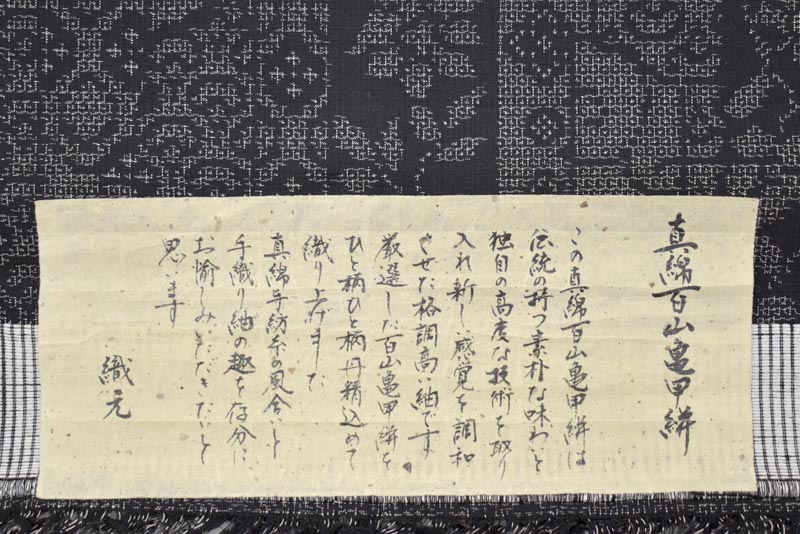 真綿百山亀甲絣
この真綿百山亀甲絣は
伝統の持つ素朴な味わいと
独自の高度な技術を取り
入れ新しい感覚を調和
させた格調高い紬です
厳選した百山亀甲絣を
ひと柄ひと柄丹精込めて
織り上げました
真綿手紡糸の風合いと
手織り紬の趣を存分に
お愉しみいただきたいと
思います
織元